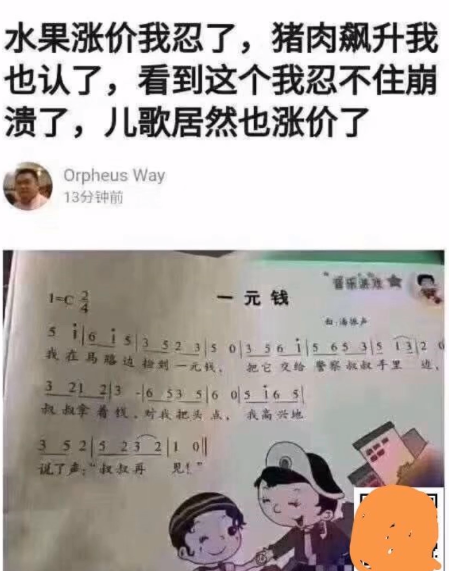 水果涨价我忍了，猪肉飙升我
也认了，看到这个我忍不住崩
溃了，儿歌居然也涨价了
Orpheus Way
13分钟前
音乐游戏
1=C 2/4
一元钱
5 i|6 i 5|3 5 2 3|5 0|3 5 6 i|5 6 5 3|5 1 3|2 0
我在马路边捡到一元钱， 把它交给警察叔叔手里边，
3 2 1 2|3 -|6 5 3 5|6 0|5 i 6 5|
叔叔拿着钱，对我把头点， 我高兴地
3 5 2|5 2 3 2|1 0||
说了声：“叔叔再见！”